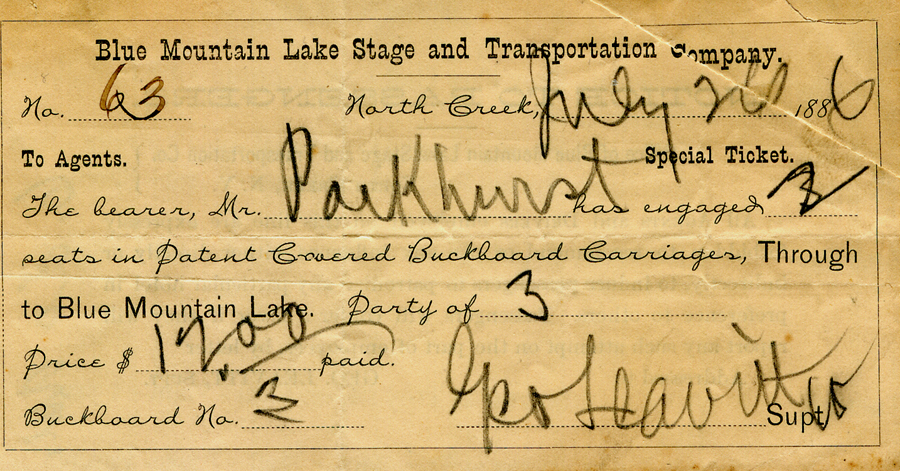 Blue Mountain Lake Stage and Transportation Company.
No. 63 North Creek, July 1886
To Agents. Special Ticket.
The bearer, Mr. Parkhurst has engaged 3
seats in Patent Covered Buckboard Carriages, Through
to Blue Mountain Lake. Party of 3
Price $ paid.
Buckboard No. 3 Geo Leavitt Supt